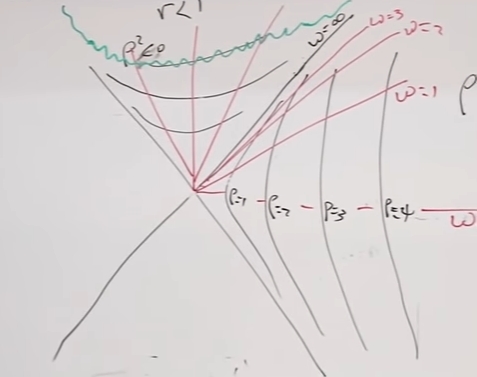 r<1
ρ²<0
ω=∞
ω=3
ω=2
ω=1
ρ
ρ=1
ρ=2
ρ=3
ρ=4
ω